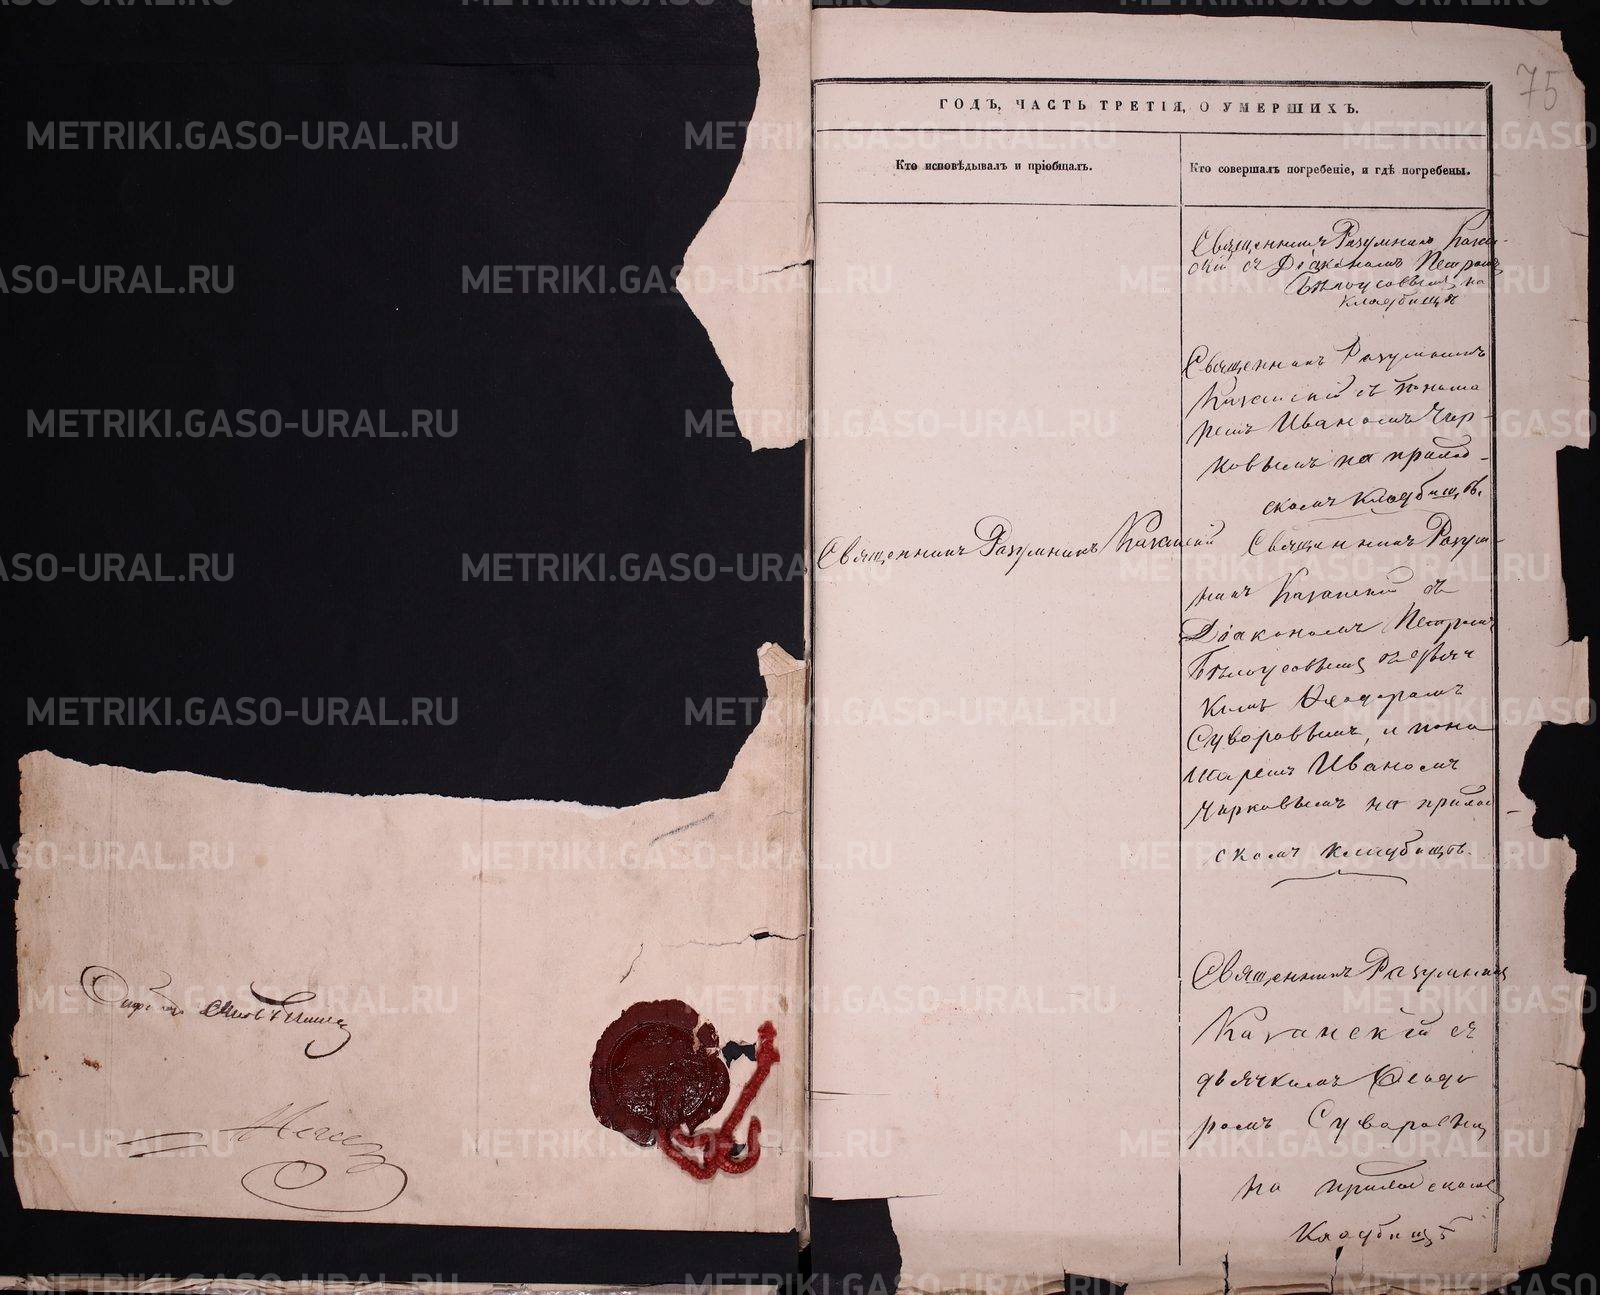 75
ГОДЪ, ЧАСТЬ ТРЕТІЯ, О УМЕРШИХЪ.
Кто исповѣдывалъ и пріобщалъ.
Кто совершалъ погребеніе, и гдѣ погребены.
Священникъ Разумникъ Казан-
скій съ Діакономъ Петромъ
Бѣлоусовымъ на
кладбищѣ
Священникъ Разумникъ
Казанскій съ понома
ремъ Иваномъ Чир-
ковымъ на приход-
скомъ кладбищѣ.
Священникъ Разумникъ Казанскій
Священникъ Разум-
никъ Казанскій съ
Діакономъ Петромъ
Бѣлоусовымъ дьяч
комъ Ѳеодоромъ
Суворовымъ, и поно
маремъ Иваномъ
Чирковымъ на приход-
скомъ кладбищѣ.
Священникъ Разумникъ
Казанскій съ
дьячкомъ Ѳеодо
ромъ Суворовымъ
на приходскомъ
Кладбищѣ
METRIKI.GASO-URAL.RU